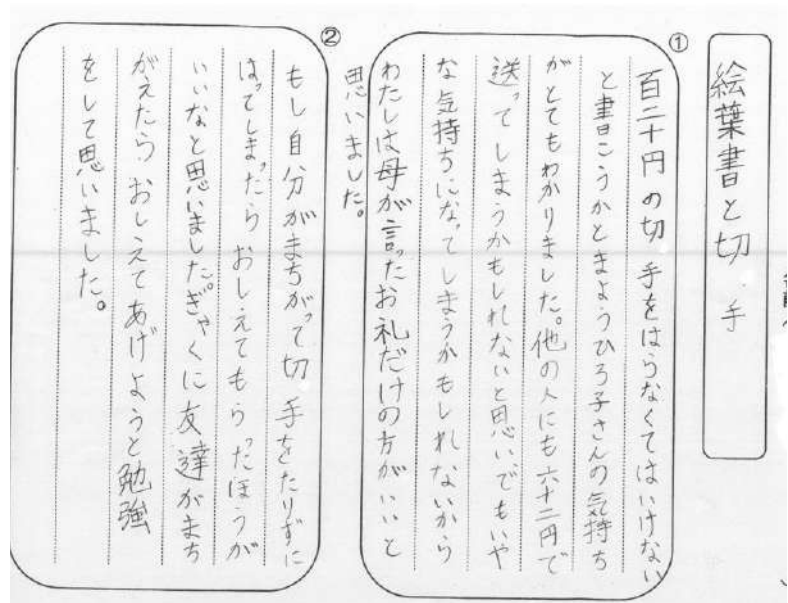 絵葉書と切手
①
百二十円の切手をはらなくてはいけない
と書こうかとまようひろ子さんの気持ち
がとてもわかりました。他の人にも六十二円で
送ってしまうかもしれないと思い、でもいや
な気持ちになってしまうかもしれないから
わたしは母が言ったお礼だけの方がいいと
思いました。
②
もし自分がまちがって切手をたりずに
はってしまったらおしえてもらったほうが
いいなと思いました。ぎゃくに友達がまち
がえたらおしえてあげようと勉強
をして思いました。